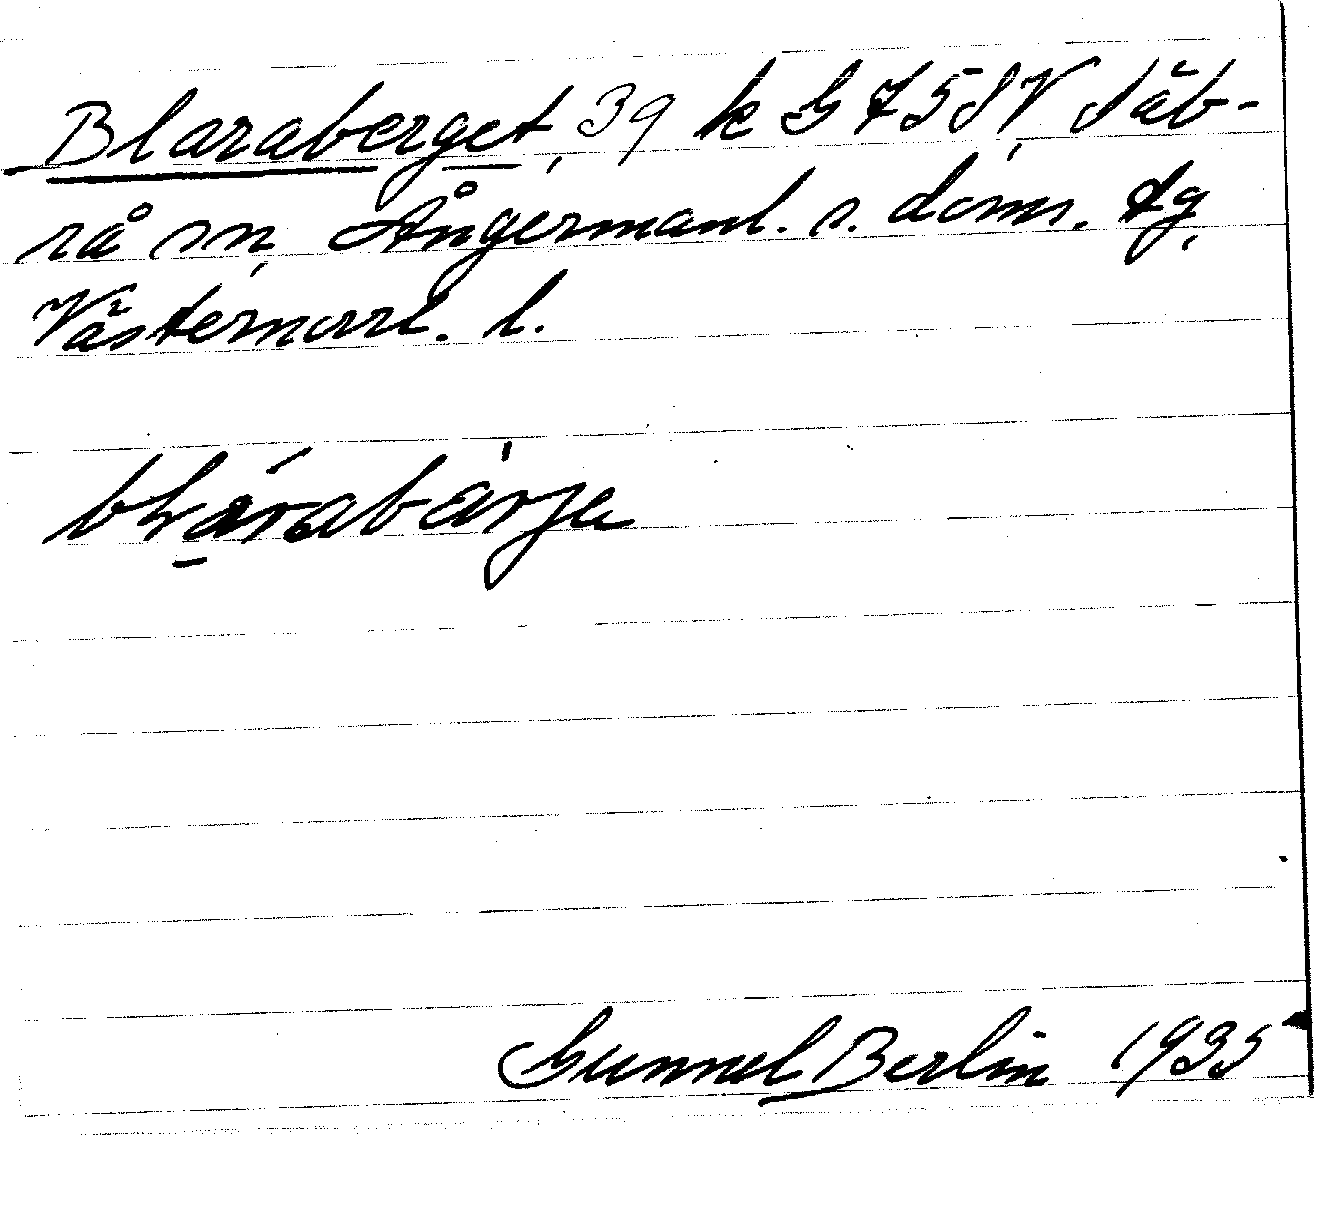 Blaraberget, 39 k G 7581V, Säb-
rå sn, Ångermanl. s. doms. tg,
Västernorrl. l.
Gunnel Berlin 1935